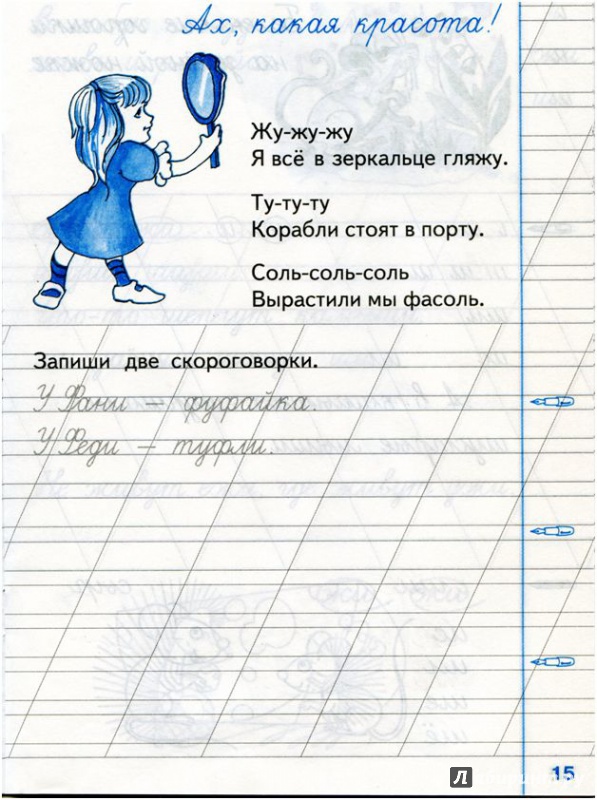 Ах, какая красота!
Жу-жу-жу
Я всё в зеркальце гляжу.
Ту-ту-ту
Корабли стоят в порту.
Соль-соль-соль
Вырастили мы фасоль.
Запиши две скороговорки.
У Фани — фуфайка.
У Феди — туфли.
15